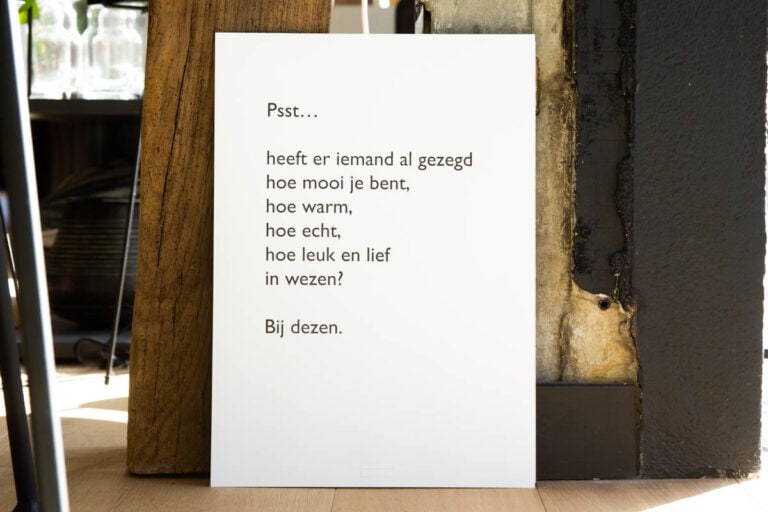 Psst…
heeft er iemand al gezegd
hoe mooi je bent,
hoe warm,
hoe echt,
hoe leuk en lief
in wezen?
Bij dezen.